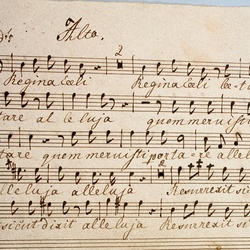 Alto.
2
Regina Cæli Regina Cæli læ-ti
tare al le luja quem meruisti
tare quem meruisti porta-re allel
alleluja alleluja Resurrexit sic
sicut dixit alleluja Resurrexit si